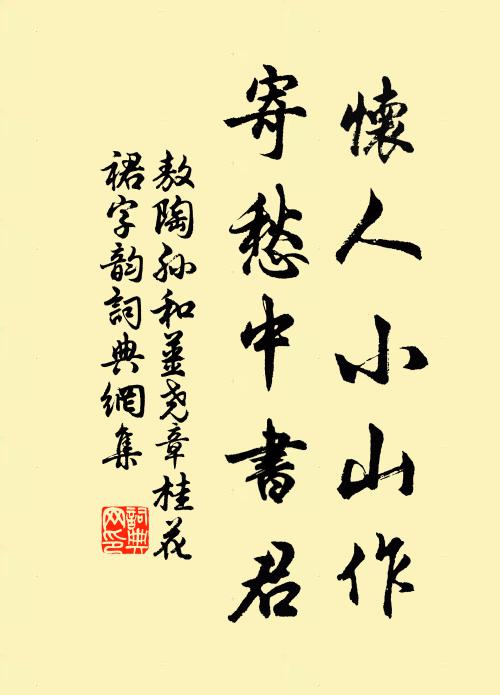 懷人小山作
寄愁中書君
敖陶孫和薑堯章桂花
裙字韵詞典網集
詞典
网印